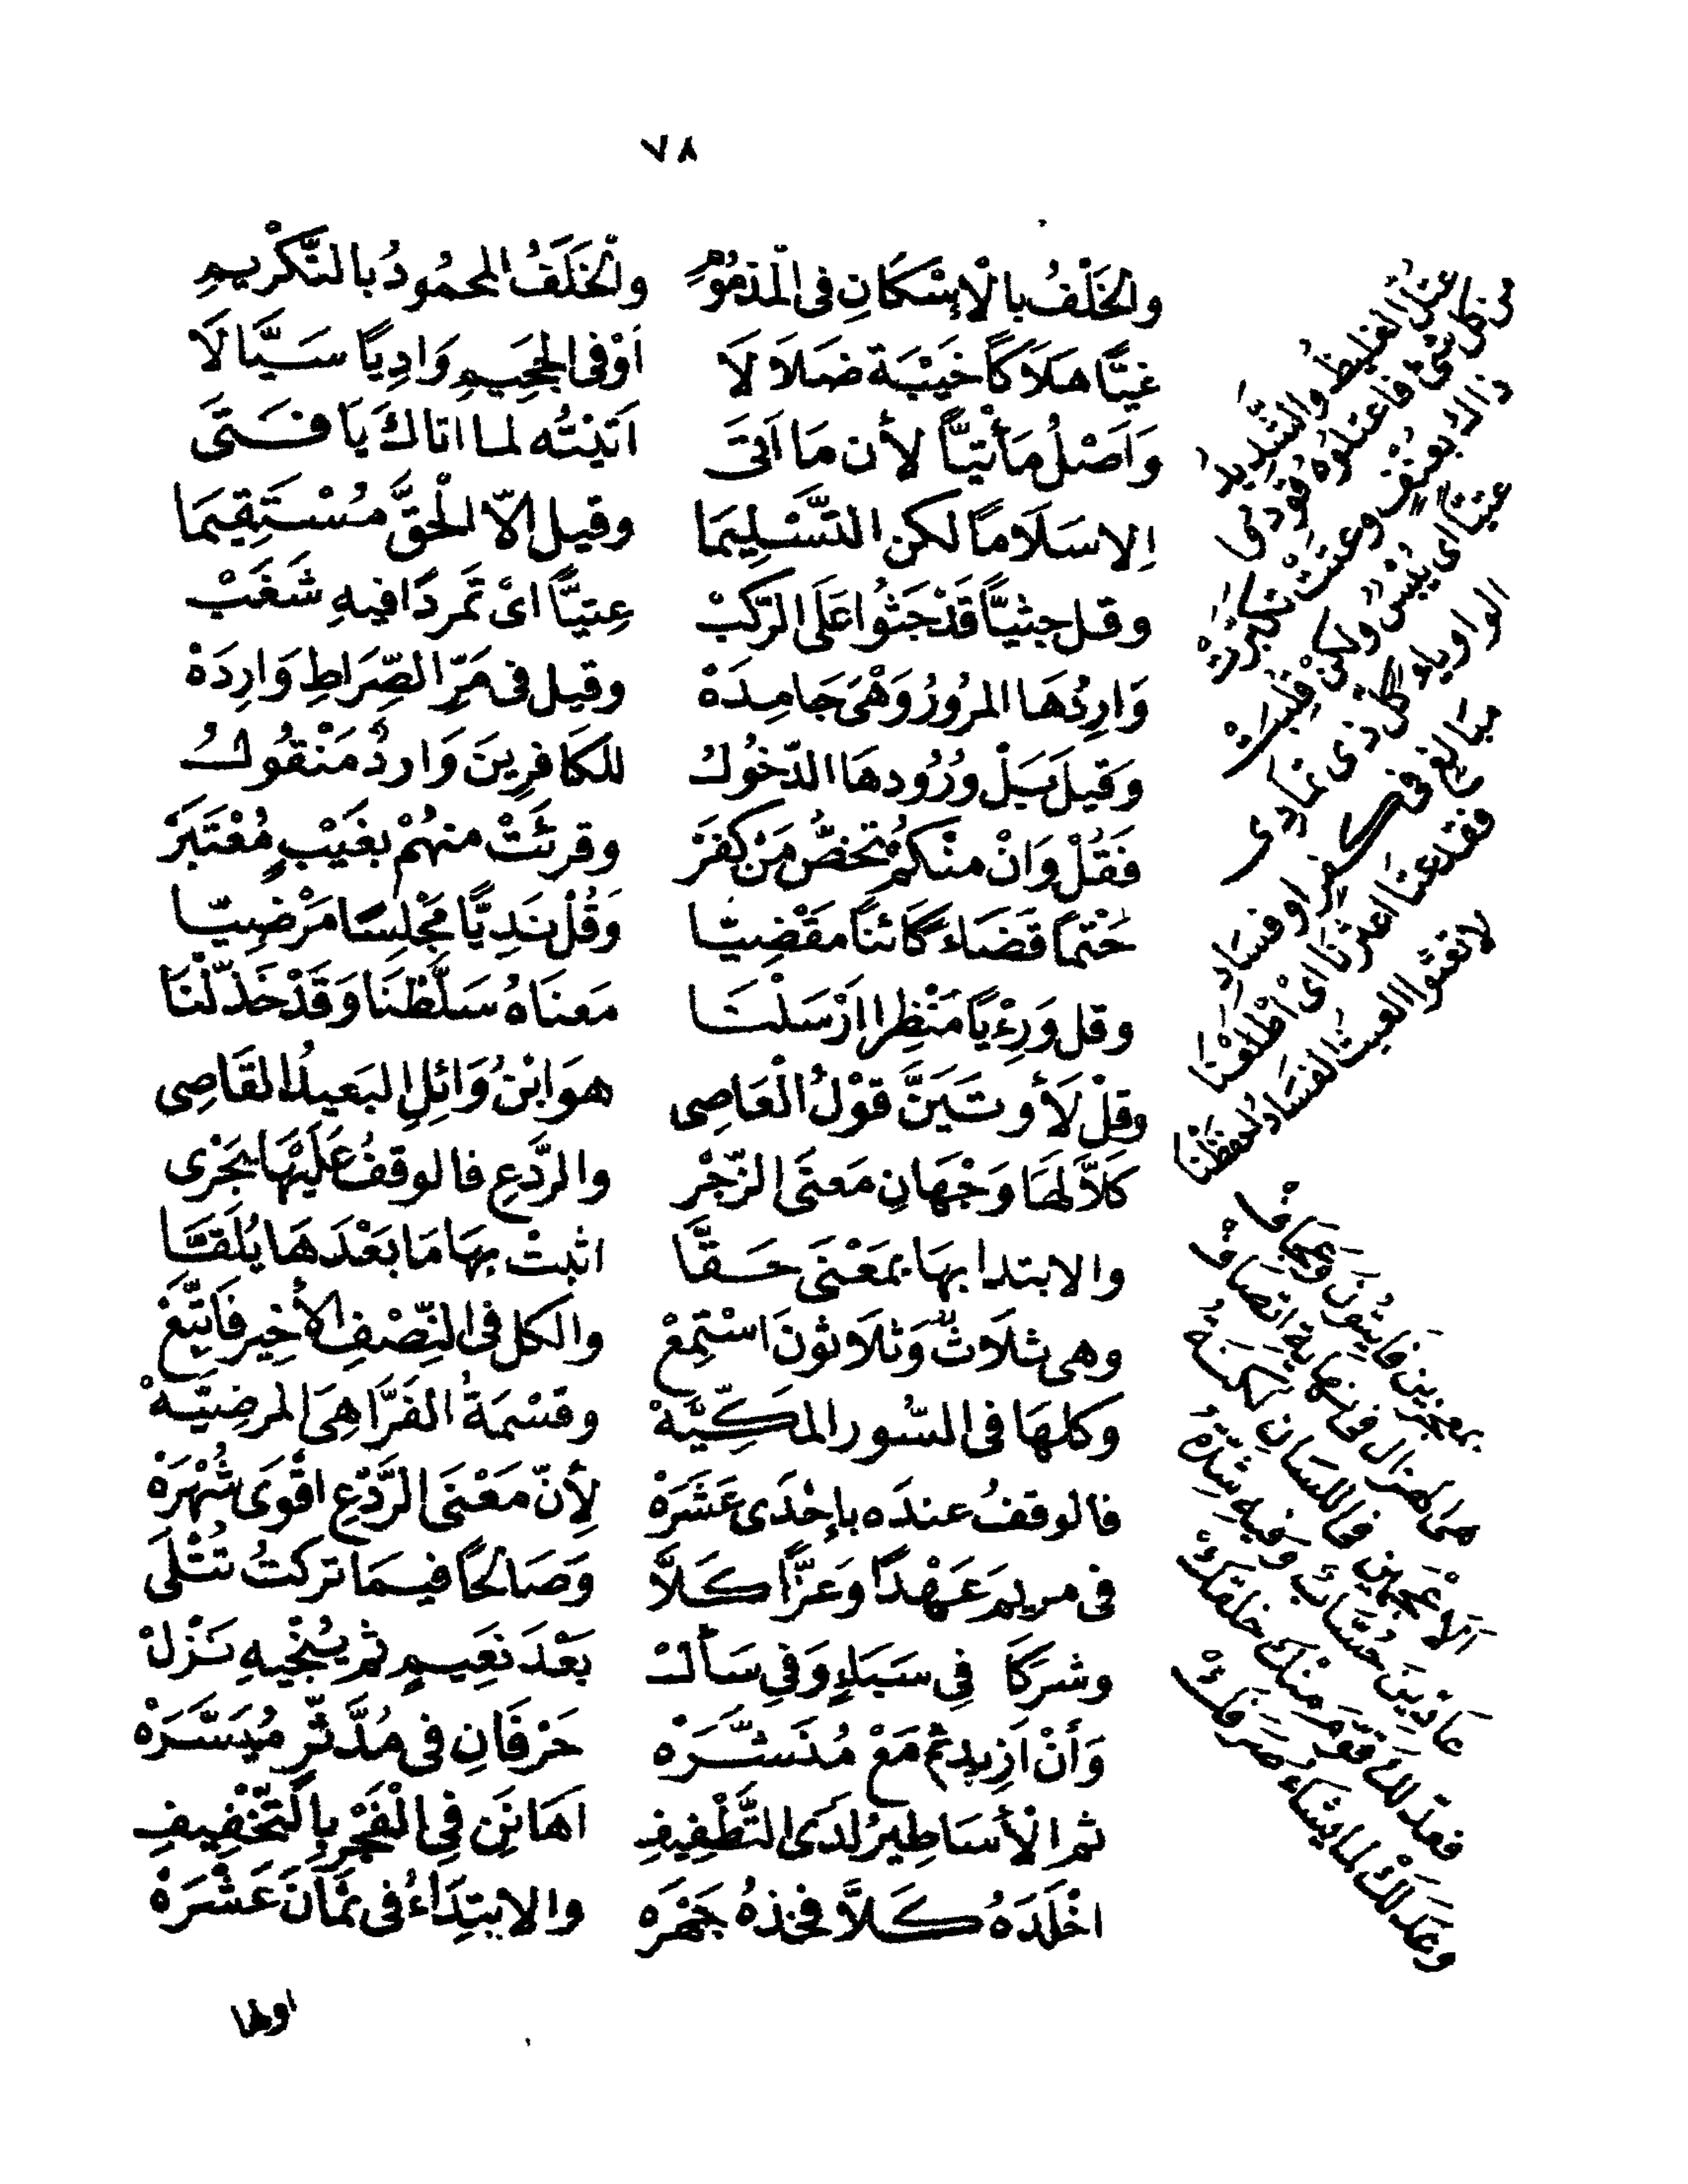 ٧٨
والخَلْفُ بالْإِسْكَانِ فى الْمَذمُوْمِ والْخَلَفُ المحمُودُ بالتَّكْرِيمِ
غيًّا هَلَاكًا خَيْبَة ضَلَالَا اَوْ فى الجَحِيمِ وَادِيًا سَيَّالَا
وَاَصْلُ مَأْتِيًّا لأن مَا اَتَى اَتَيْتُه لما اتاكَ يَا فَتَى
اِلا سَلَامًا لكن التَّسْلِيمَا وقيل الّا الْحَقَّ مُسْتَقِيمَا
وقل جِثيًّا قَدْ جَثُوا عَلَى الرَّكَبْ عِتِيًّا اىْ تَمردًا فيهِ شَغَبْ
وَارِدُهَا المرُورُ وَهْىَ جَامِدَهْ وقيل فى مَرِّ الصِّرَاطِ وَارِدَهْ
وَقيلَ بَلْ وُرُودهَا الدّخُولُ للكَافِرِينَ وَاردٌ مَنْقُولُ
فَقُلْ وَانْ منْكمُ تخصُّ مَنْ كَفَرْ وقرئَتْ منهُمْ بغَيْبٍ مُعْتَبَرْ
حَتْمًا قَضَاءً كَائنًا مَقْضِيًّا وَقُلْ نَدِيًّا مَجْلِسًا مَرْضِيّا
وقل وَرِءْيًا مَنْظِرا اَرْسَلْنَا مَعنَاهُ سَلَّطْنَا وَقَدْ خَذّلْنَا
وقلْ لَأُوتَيَنَّ قوْلُ الْعَاصِى هوَ ابْنُ وَائِلِ البَعيدُ القَاصِى
كَلَّا لهَا وَجْهَانِ مَعنَى الزّجْرِ والرَّدَعِ فالوقفُ عَلَيْهَا يَجْرى
والابتدا بهَا بمَعْنَى حَقَّا اثبتْ بهَا مَا بَعْدَهَا يُلَقَّا
وهى ثلَاثٌ وَثلَاثونَ اسْتَمِعْ والكل فى النِّصْفِ الأخِير فَاتَّبِعْ
وكلهَا فى السُّور المَكِّيَّهْ وقسْمَةُ الفَرَّا هِىَ المرضِيَّهْ
فالوقفُ عندَه بإحْدَى عَشَرَهْ لِأنّ مَعْنَى الرَّدْعِ اقْوَى شُهْرَهْ
فى مريمَ عَهْدًا وعَزًّا كَلَّا وَصَالحًا فيمَا تركتُ تُتْلَى
وشرَكَا فِى سَبَإٍ وَفِى سَألْ بَعْدَ نَعِيمٍ ثم يُنْجيهِ نَزَلْ
وَأَنْ اَزِيد ثم مَعْ مُنَشَّرَه حَرْفَانِ فى مُدَّثِّرٍ مُيَسَّرَهْ
ثم الْأَسَاطِيرُ لَدَى التَّطْفِيفِ اَهَانَنِ فِى الْفَجْرِ بِالتَّخْفِيفِ
اخْلَدَهُ كَلَّا فخذهُ جَهْرَه والابتِدَاءُ فى ثمَانَ عَشْرَهْ
عتلّ الغليظُ والشّديدُ
من كل شئ فاعتلوُه قودى
ذاك بعُنْفٍ وعتَتْ تكبّرَتْ
عتيًّا اى يُبْسٌ ولكن قلبَتْ
الواو ياء كل ذى تمادى
مبَالغ فى كفر او فسَاد
فقل عثَا اعثرنَا اى اطْلعْنَا
لا تعثوا العيث الفسَادُ
بمعجزينَ فايتونَ وعجَافْ
هى الهزال فى نهاية اتصَافْ
اَلْأعجمين فى اللسَان لكنَةُ
عَادينَ حُسَّابٌ وفيهِ شِدّةُ
فعدّلكَ قوّمَ مِنكَ خلقكْ
وعَدَلكْ لما يشَاءُ صَرَفكْ
اولها